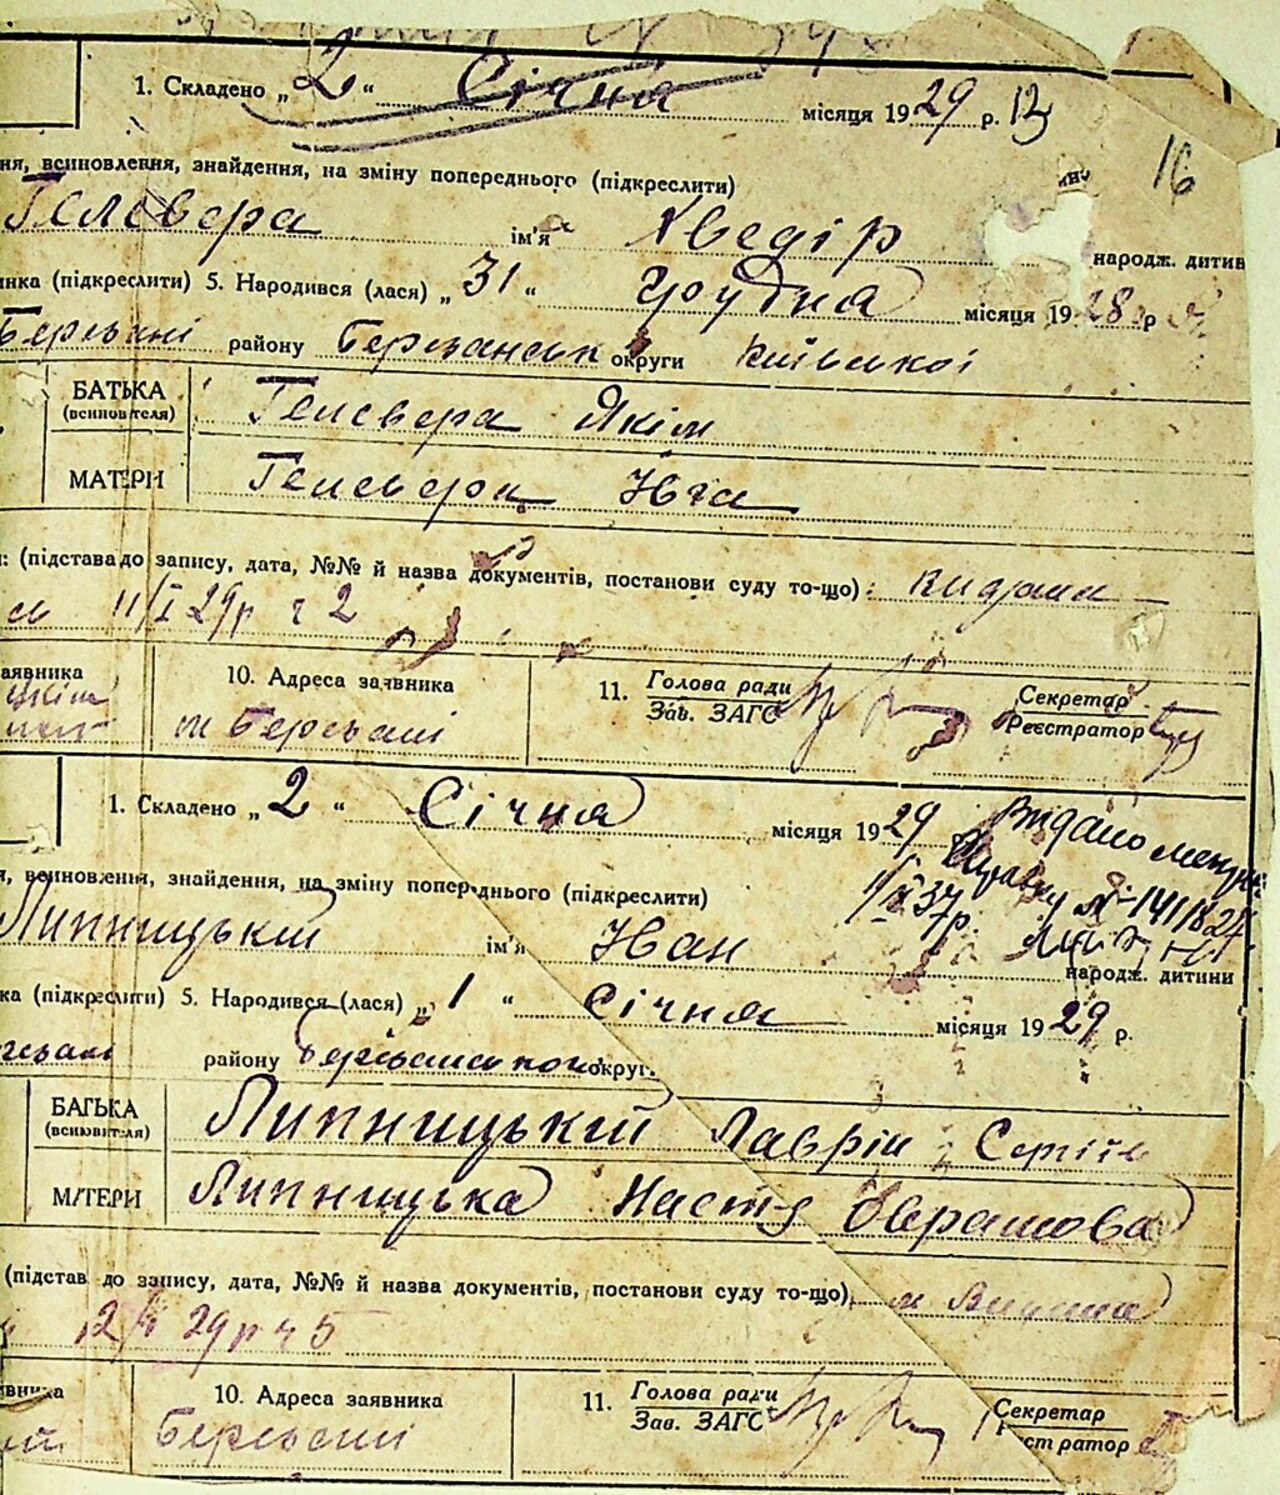 1. Складено „ 2 “ Січня місяця 1929 р.
16
ня, всиновлення, знайдення, на зміну попереднього (підкреслити)
Гелевера ім'я Хведір народж. дитин
инка (підкреслити) 5. Народився (лася) „ 31 “ грудна місяця 1928 р
Березані району Березанськ округи Київської
БАТЬКА (всиновителя) Гелевера Якім
МАТЕРИ Гелевера Івга
: (підстава до запису, дата, №№ й назва документів, постанови суду то-що):
11/I 29р ч 2
аявника 10. Адреса заявника 11. Голова ради Секретар
Якім Зав. ЗАГС Реєстратор
м Березані
1. Складено „ 2 “ Січня місяця 1929 Видано
, всиновлення, знайдення, на зміну попереднього (підкреслити)
37р. № 141182
Липницькій ім'я Іван народж. дитини
ка (підкреслити) 5. Народився (лася) „ 1 “ Січня місяця 1929 р.
району Березанського округ.
БАТЬКА (всиновителя) Липницькій Лаврін Сергіїв
МАТЕРИ Липницька Настя Оврамова
(підстав до запису, дата, №№ й назва документів, постанови суду то-що)
29р ч 5
явника 10. Адреса заявника 11. Голова ради Секретар
Березані Зав. ЗАГС стратор